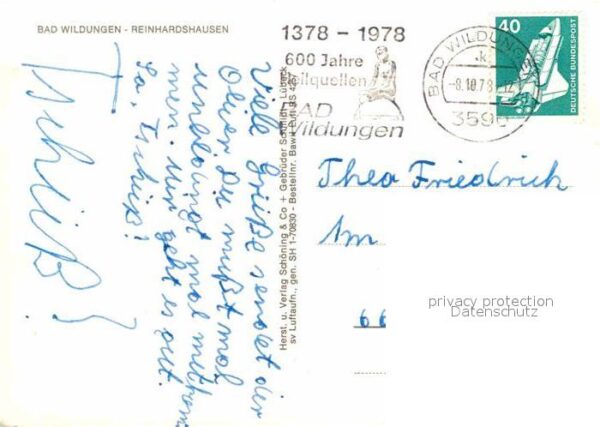 BAD WILDUNGEN - REINHARDSHAUSEN
1378 - 1978
600 Jahre
Heilquellen
BAD
Wildungen
BAD WILDUNGEN
-8.10.78
3590
40
DEUTSCHE BUNDESPOST
Viele Grüße sendet der
Oliver. Du mußt mal
unbedingt mal mitkom
men. Mir geht es gut.
So, Tschüß!
Tschüß!
Herst. u. Verlag Schöning & Co + Gebrüder Schmidt, Lübeck
sv Luftaufn., gen. SH 1-70830 - Bestellnr. Bawi Luft SS 42
Thea Friedrich
Im
66
privacy protection
Datenschutz